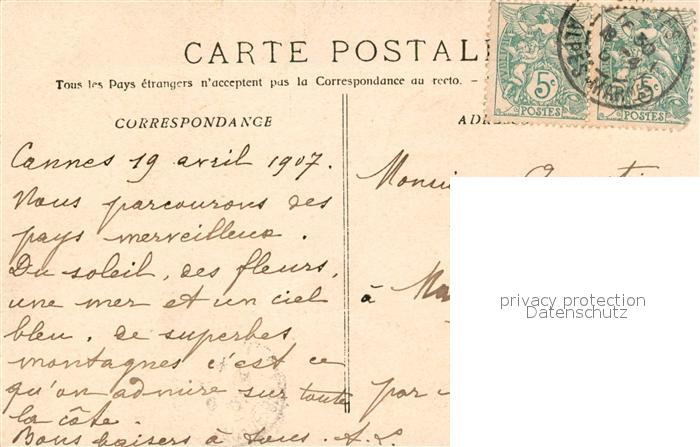 CARTE POSTALE
Tous les Pays étrangers n'acceptent pas la Correspondance au recto. -
CORRESPONDANCE
Cannes 19 avril 1907.
Nous parcourons des
pays merveilleux.
Du soleil, des fleurs,
une mer et un ciel
bleu. de superbes
montagnes c'est ce
qu'on admire sur toute
la côte.
Bons baisers à tous. A.L.
ADRESSE
5c
POSTES
5c
POSTES
ALPES-MAR
à
par
privacy protection
Datenschutz